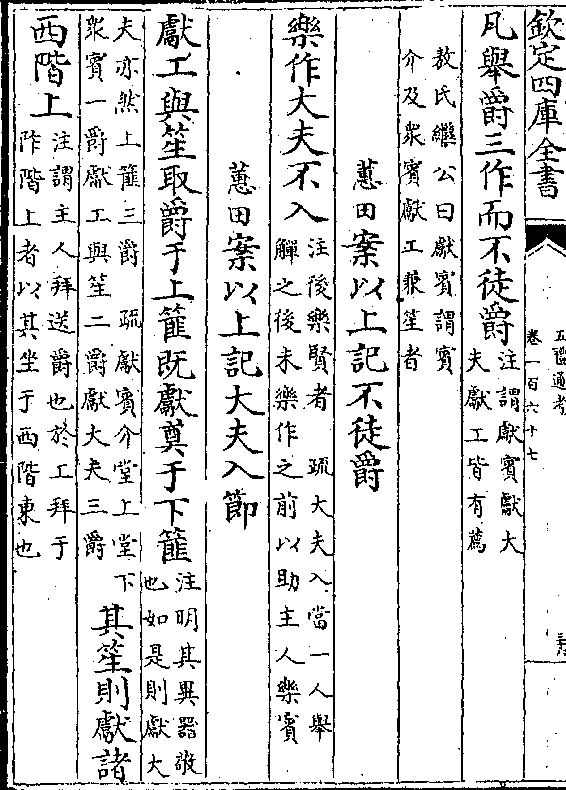 欽定四庫全書
五禮通考
卷一百六十七
凡舉爵三作而不徒爵
注謂獻賓獻大
夫獻工皆有薦
敖氏繼公曰獻賓謂賓
介及衆賓獻工兼笙者
蕙田案以上記不徒爵
樂作大夫不入
注後樂賢者 疏大夫入當一人舉
觶之後未樂作之前以助主人樂賓
蕙田案以上記大夫入節
獻工與笙取爵于上篚既獻奠于下篚
注明其異器敬
也如是則獻大
夫亦然上篚三爵 疏獻賓介堂上堂下
衆賓一爵獻工與笙二爵獻大夫三爵
其笙則獻諸
西階上
注謂主人拜送爵也於工拜于
阼階上者以其坐于西階東也